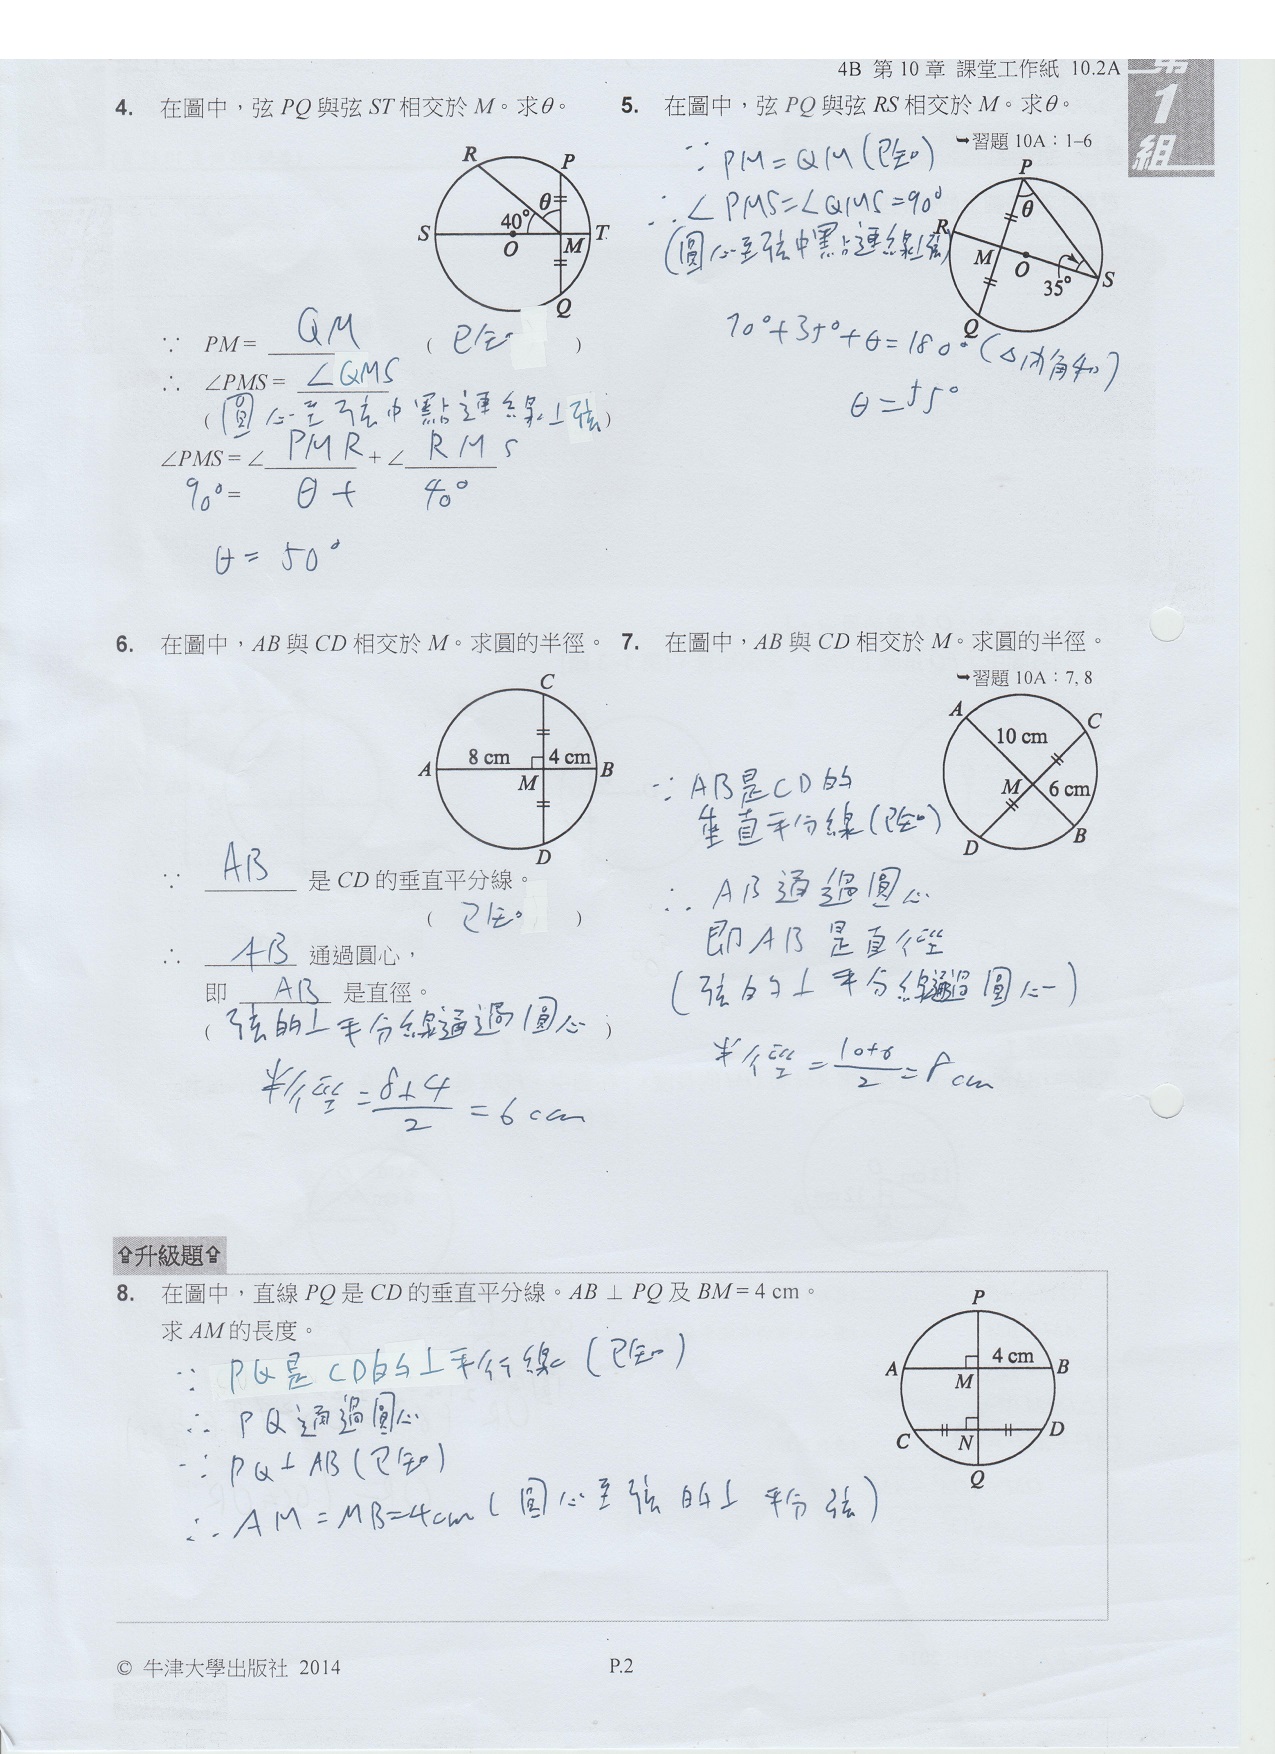 4B 第 10 章 課堂工作紙 10.2A
第
1
組
4. 在圖中，弦 PQ 與弦 ST 相交於 M。求θ。
R
P
θ
40°
S
O
M
T
Q
∵ PM = QM ( 已知 )
∴ ∠PMS = ∠QMS
( 圓心至弦中點連線⊥弦 )
∠PMS = ∠ PMR + ∠ RMS
90° = θ + 40°
θ = 50°
5. 在圖中，弦 PQ 與弦 RS 相交於 M。求θ。
➥習題 10A：1–6
∵ PM = QM (已知)
∴ ∠PMS = ∠QMS = 90°
(圓心至弦中點連線⊥弦)
P
θ
R
M
O
35°
S
Q
90° + 35° + θ = 180° (△內角和)
θ = 55°
6. 在圖中，AB 與 CD 相交於 M。求圓的半徑。
C
8 cm
4 cm
A
M
B
D
∵ AB 是 CD 的垂直平分線。
( 已知 )
∴ AB 通過圓心，
即 AB 是直徑。
( 弦的⊥平分線通過圓心 )
半徑 = 8+4/2 = 6 cm
7. 在圖中，AB 與 CD 相交於 M。求圓的半徑。
➥習題 10A：7, 8
A
C
10 cm
M
6 cm
D
B
∵ AB是CD的
垂直平分線(已知)
∴ AB 通過圓心
即 AB 是直徑
(弦的⊥平分線通過圓心)
半徑 = 10+6/2 = 8 cm
⇪升級題⇪
8. 在圖中，直線 PQ 是 CD 的垂直平分線。AB ⊥ PQ 及 BM = 4 cm。
求 AM 的長度。
P
4 cm
A
M
B
C
N
D
Q
∵ PQ是CD的⊥平行線 (已知)
∴ PQ 通過圓心
∵ PQ⊥AB (已知)
∴ AM = MB = 4cm ( 圓心至弦的⊥平分弦 )
© 牛津大學出版社 2014
P.2